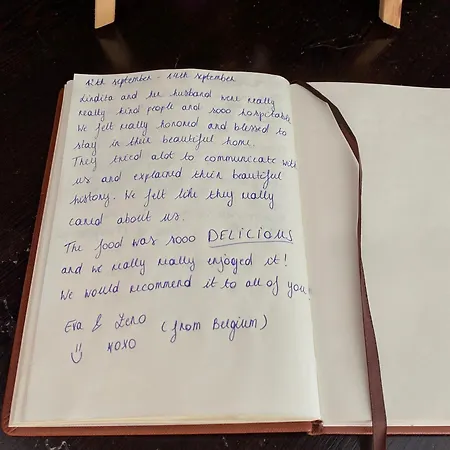 12th september - 14th september
Lindita and her husband were really
really kind people and sooo hospitable
We felt really honored and blessed to
stay in their beautiful home.
They tried alot to communicate with
us and explained their beautiful
history. We felt like they really
cared about us.
The food was sooo DELICIOUS
and we really really enjoyed it!
We would recommend it to all of you!
Eva & Leno (from Belgium)
xoxo